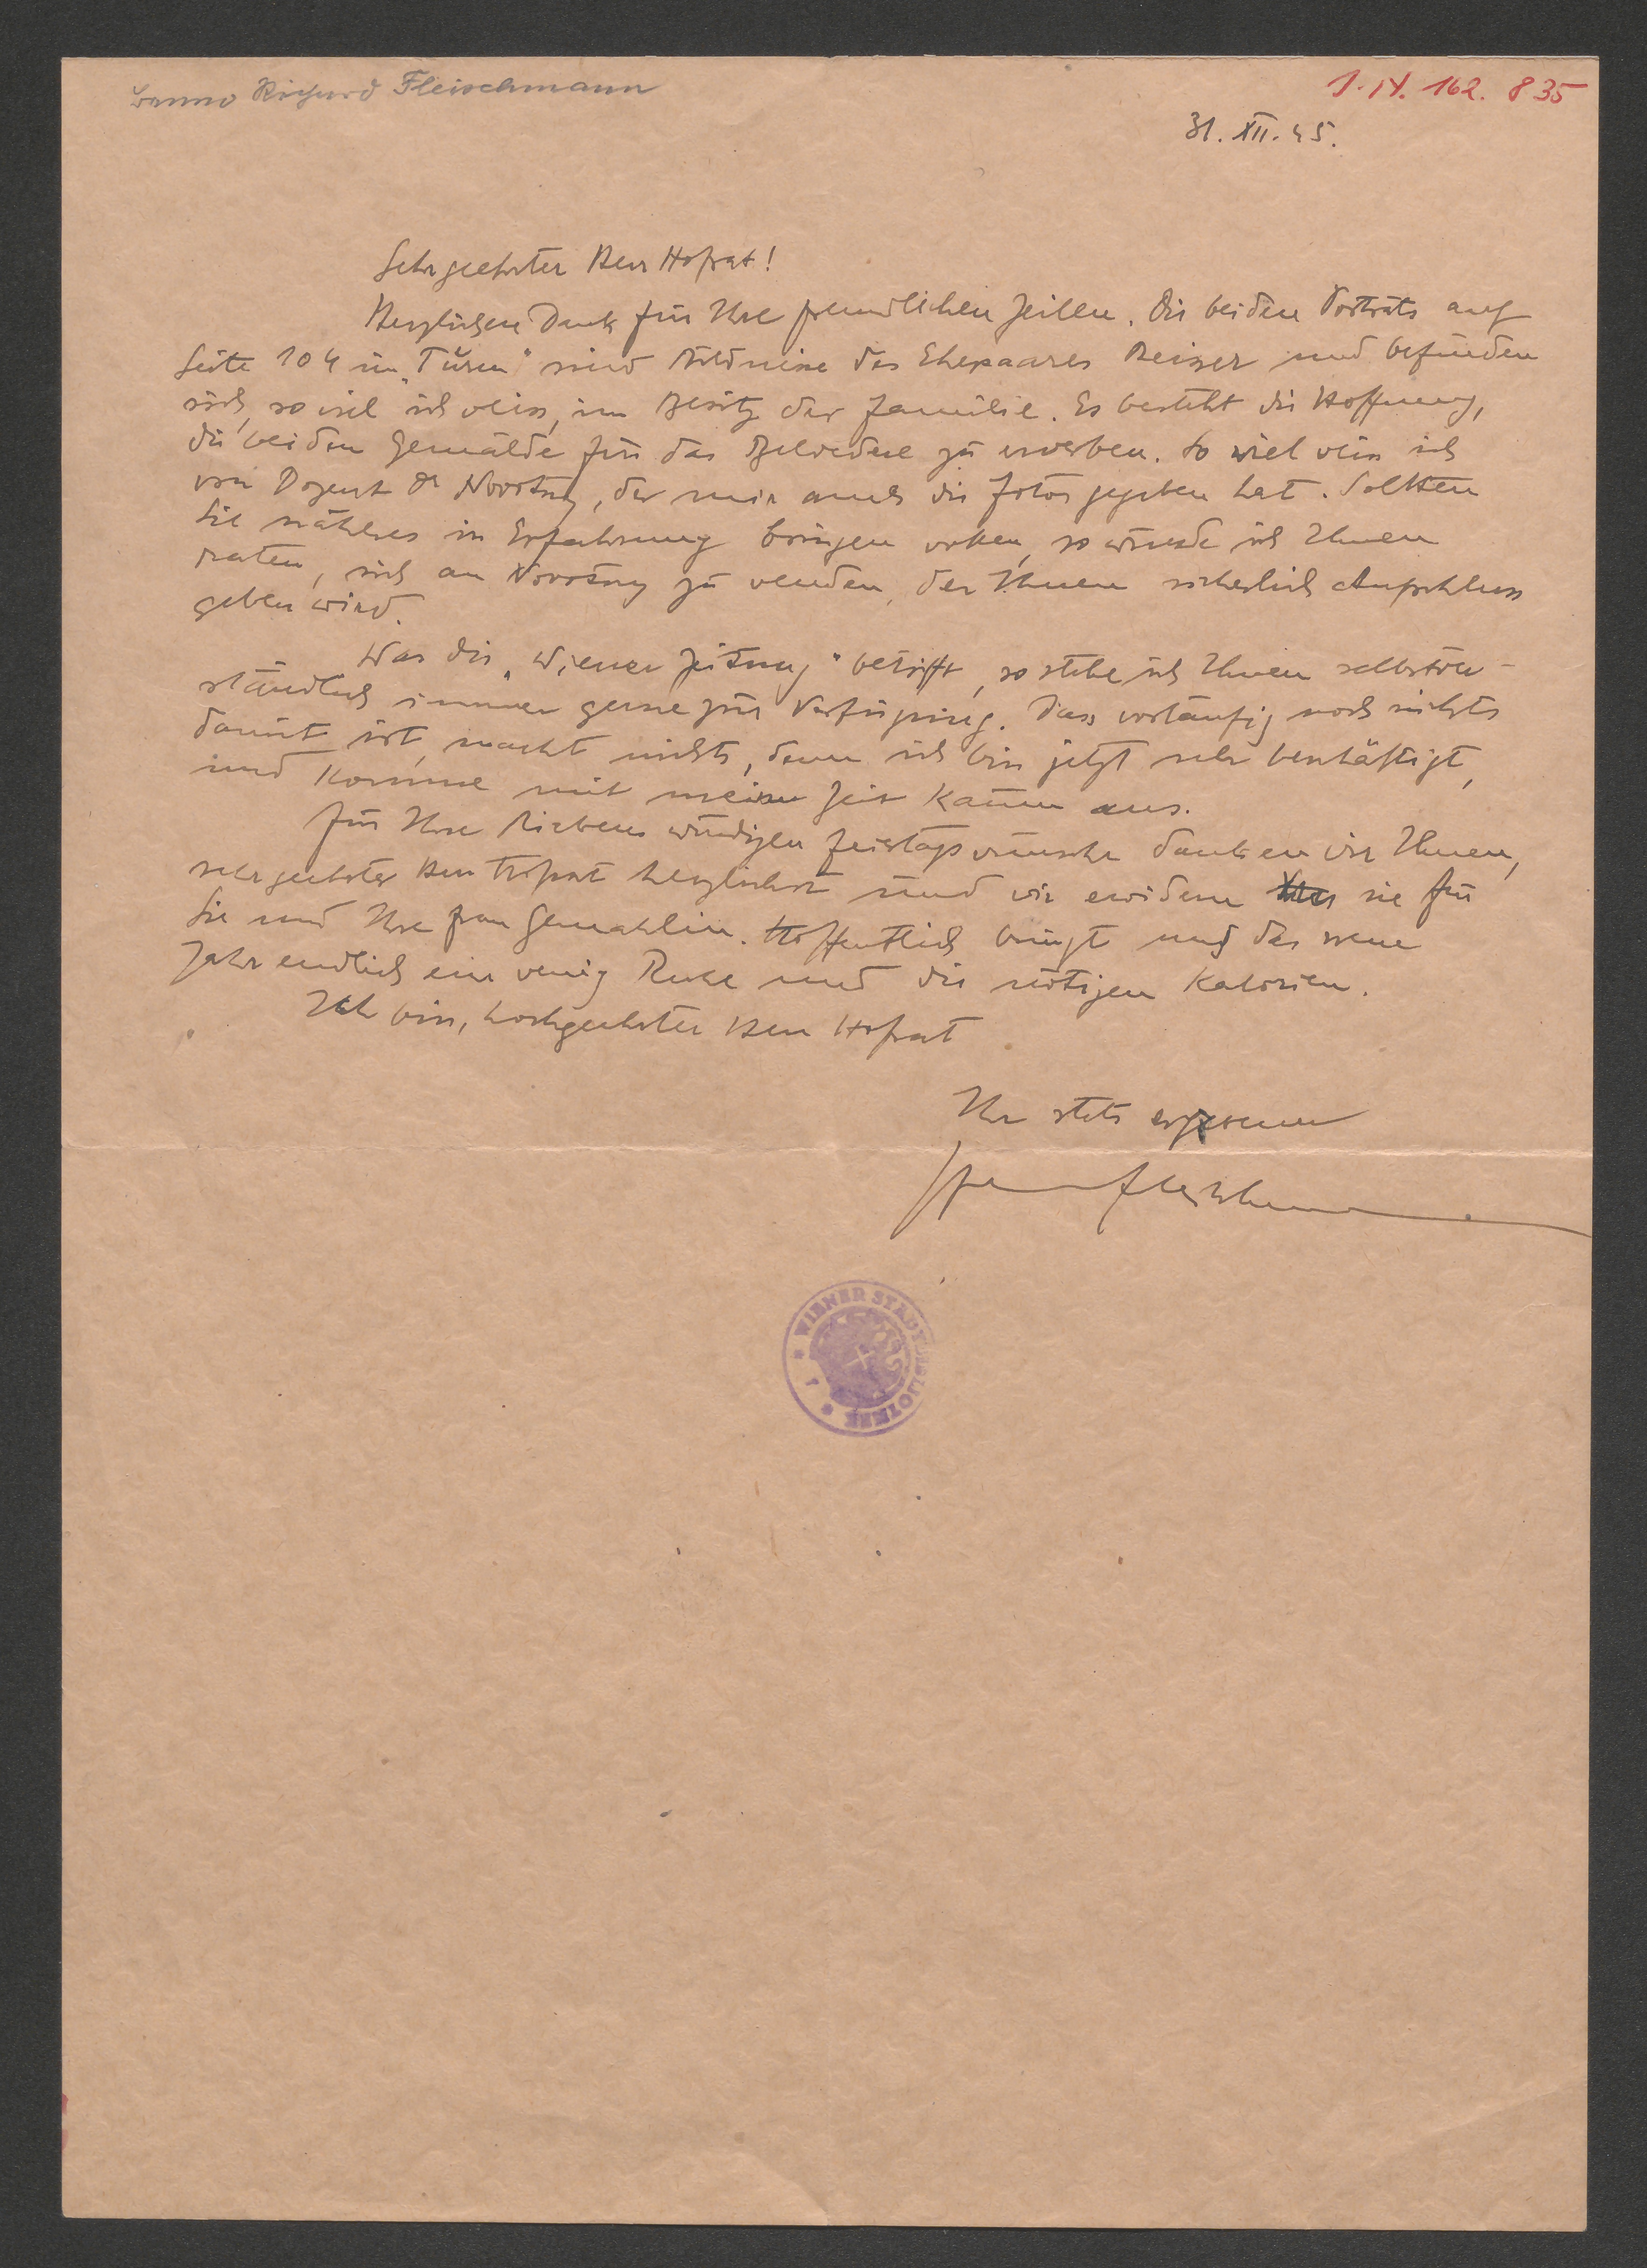 Benno Richard Fleischmann
J. N. 162.835
31. XII. 45.
Sehr geehrter Herr Hofrat!
Herzlichen Dank für Ihre freundlichen Zeilen. Die beiden Porträts auf
Seite 104 im „Turm" sind Bildnisse des Ehepaares Reiser und befinden
sich, so viel ich weiss, im Besitz der Familie. Es besteht die Hoffnung,
die beiden Gemälde für das Belvedere zu erwerben. So viel weiss ich
von Dozent Dr Novotny, der mir auch die Fotos gegeben hat. Sollten
Sie näheres in Erfahrung bringen wollen, so würde ich Ihnen
raten, sich an Novotny zu wenden, der Ihnen sicherlich Aufschluss
geben wird.
Was die „Wiener Zeitung" betrifft, so stehe ich Ihnen selbstver-
ständlich immer gerne zur Verfügung. Dass vorläufig noch nichts
damit ist, macht nichts, denn ich bin jetzt sehr beschäftigt,
und komme mit meiner Zeit kaum aus.
Für Ihre liebenswürdigen Feiertagswünsche danken wir Ihnen,
sehr geehrter Herr Hofrat herzlichst und wir erwidern sie für
Sie und Ihre Frau Gemahlin. Hoffentlich bringt uns das neue
Jahr endlich ein wenig Ruhe und die nötigen Kalorien.
Ich bin, hochgeehrter Herr Hofrat
Ihr stets ergebener
Fleischmann
WIENER STADTBIBLIOTHEK
1